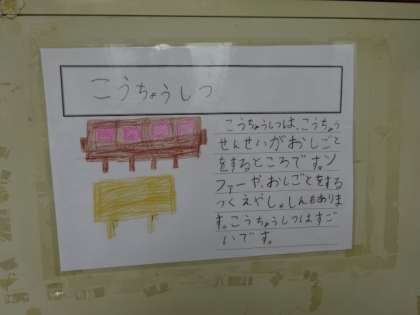 こうちょうしつ
こうちょうしつは、こうちょう
せんせいがおしごと
をするところです。ソ
ファーや、おしごとをする
つくえやしゃしんもありま
す。こうちょうしつはすご
いです。